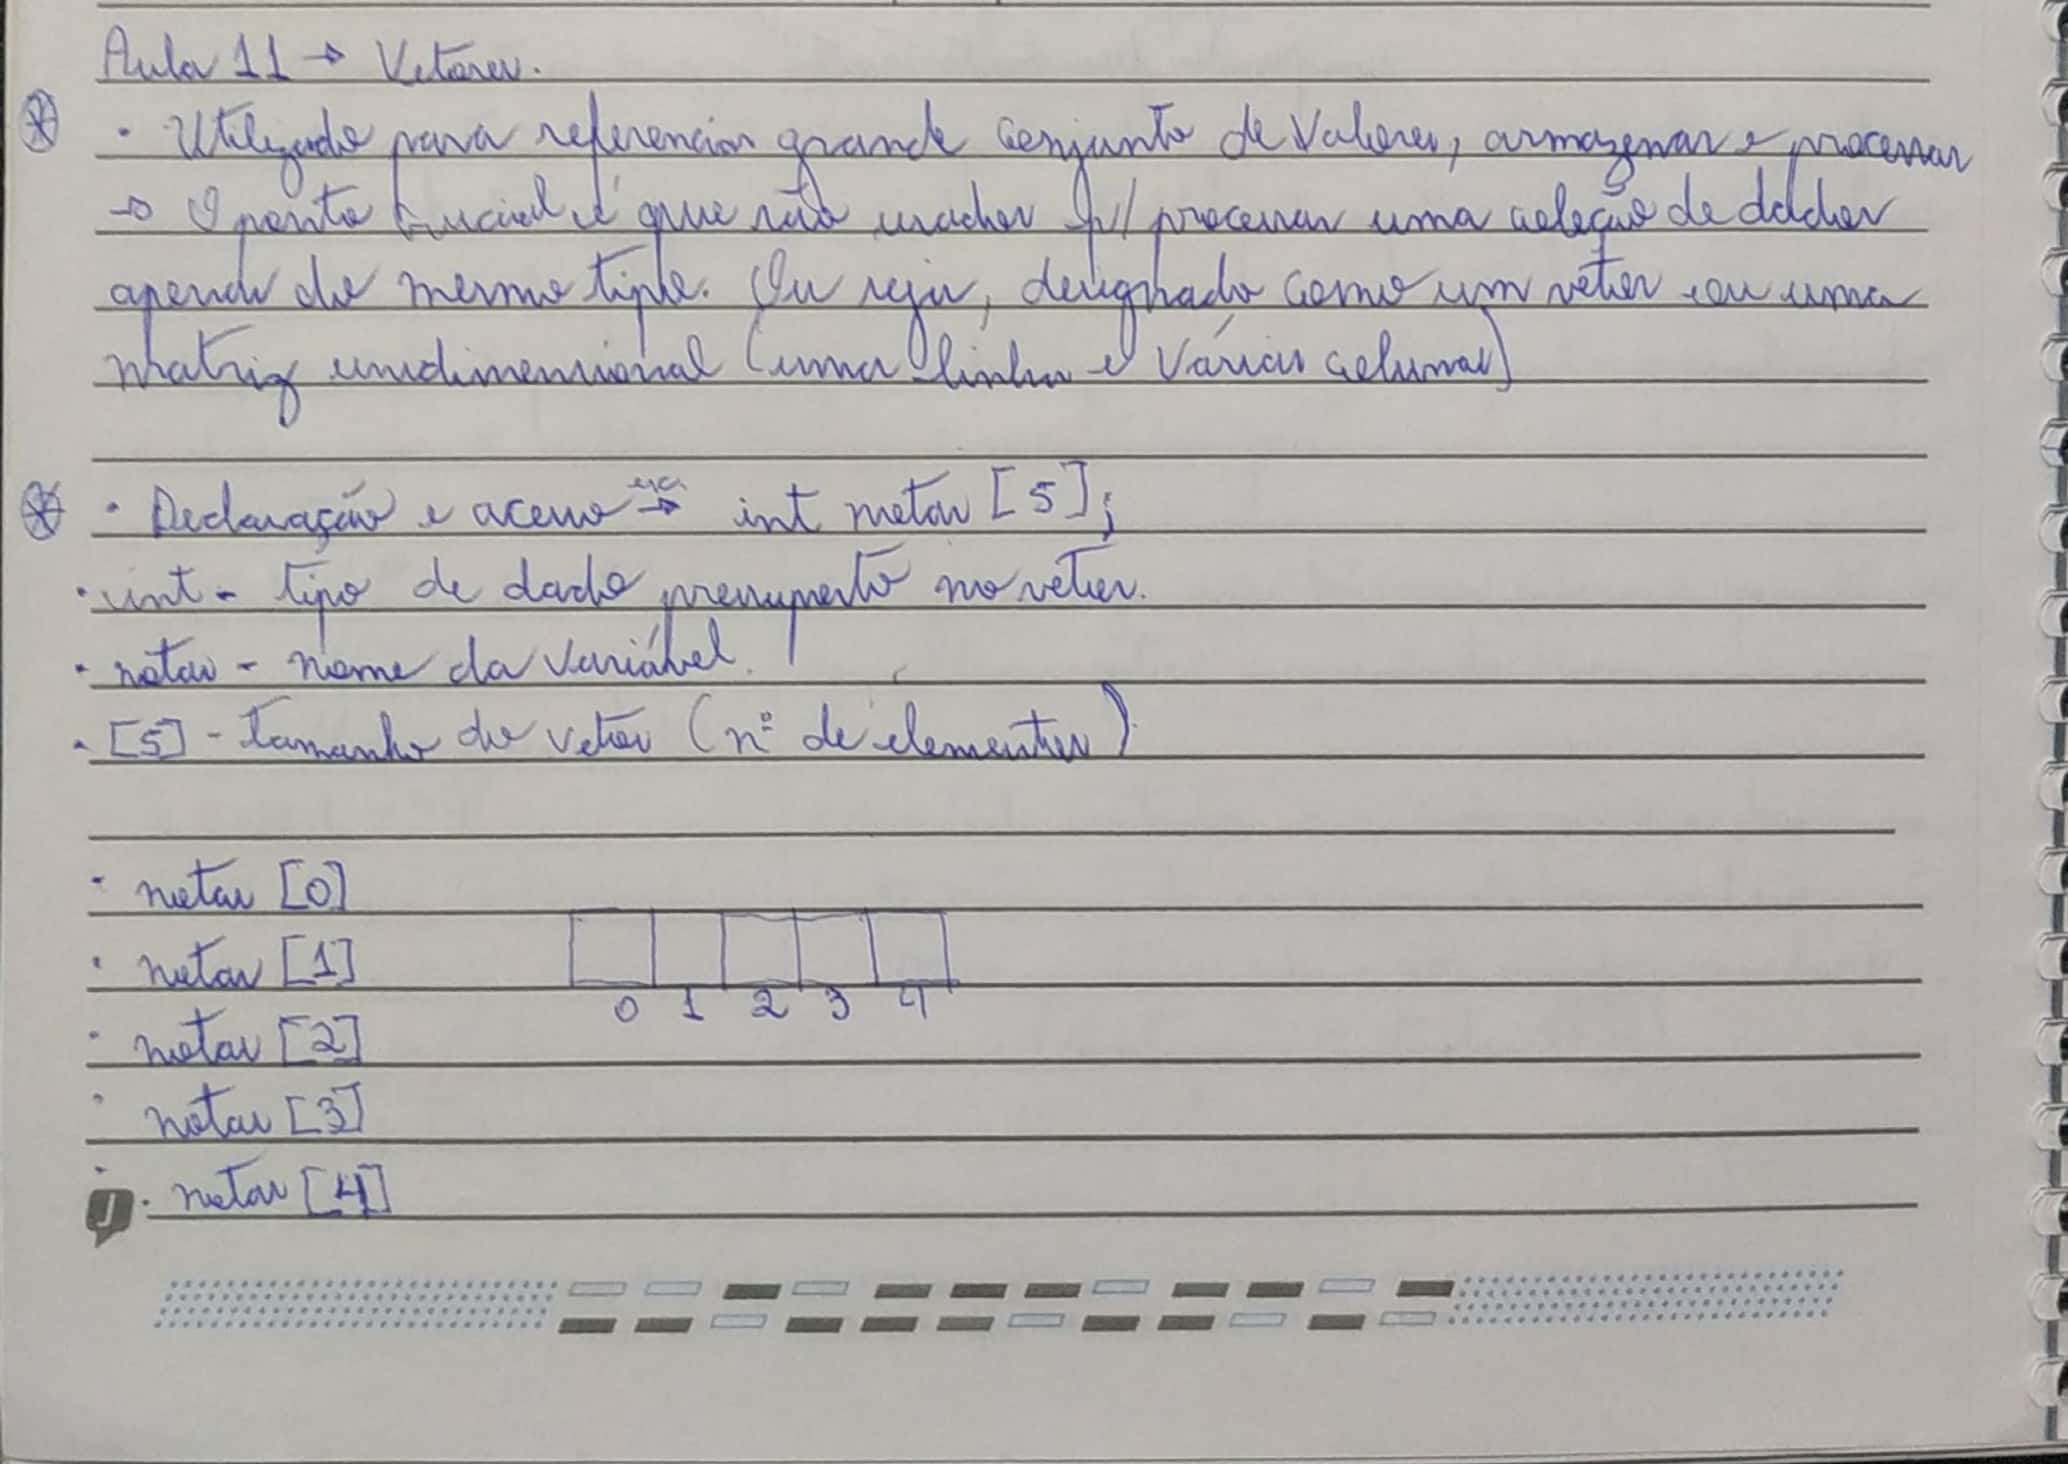 Aula 11 → Vetores.
• Utilizado para referenciar grande conjunto de valores, armazenar e processar
→ O ponto crucial é que são usados p/ processar uma coleção de dados
apenas do mesmo tipo. Ou seja, designado como um vetor ou uma
matriz unidimensional (uma linha e várias colunas)
• Declaração e acesso ex: → int notas [5];
• int - tipo de dado pressuposto no vetor.
• notas - nome da variável.
• [5] - tamanho do vetor (nº de elementos)
• notas [0]
• notas [1]
0 1 2 3 4
• notas [2]
• notas [3]
• notas [4]